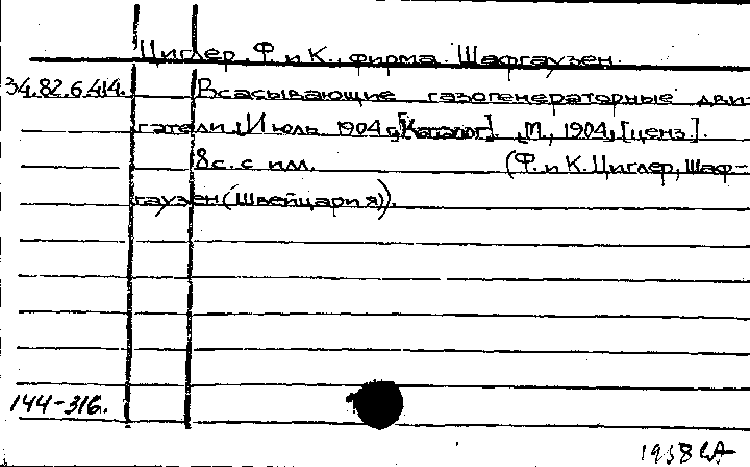 Циглер, Ф. и К., фирма. Шафгаузен.
34.82.6.414. Всасывающие газогенераторные дви-
гатели. Июль 1904 г. [Каталог]. М., 1904, [ценз.].
8 с. с илл. (Ф. и К. Циглер, Шаф-
гаузен (Швейцария)).
144-316.